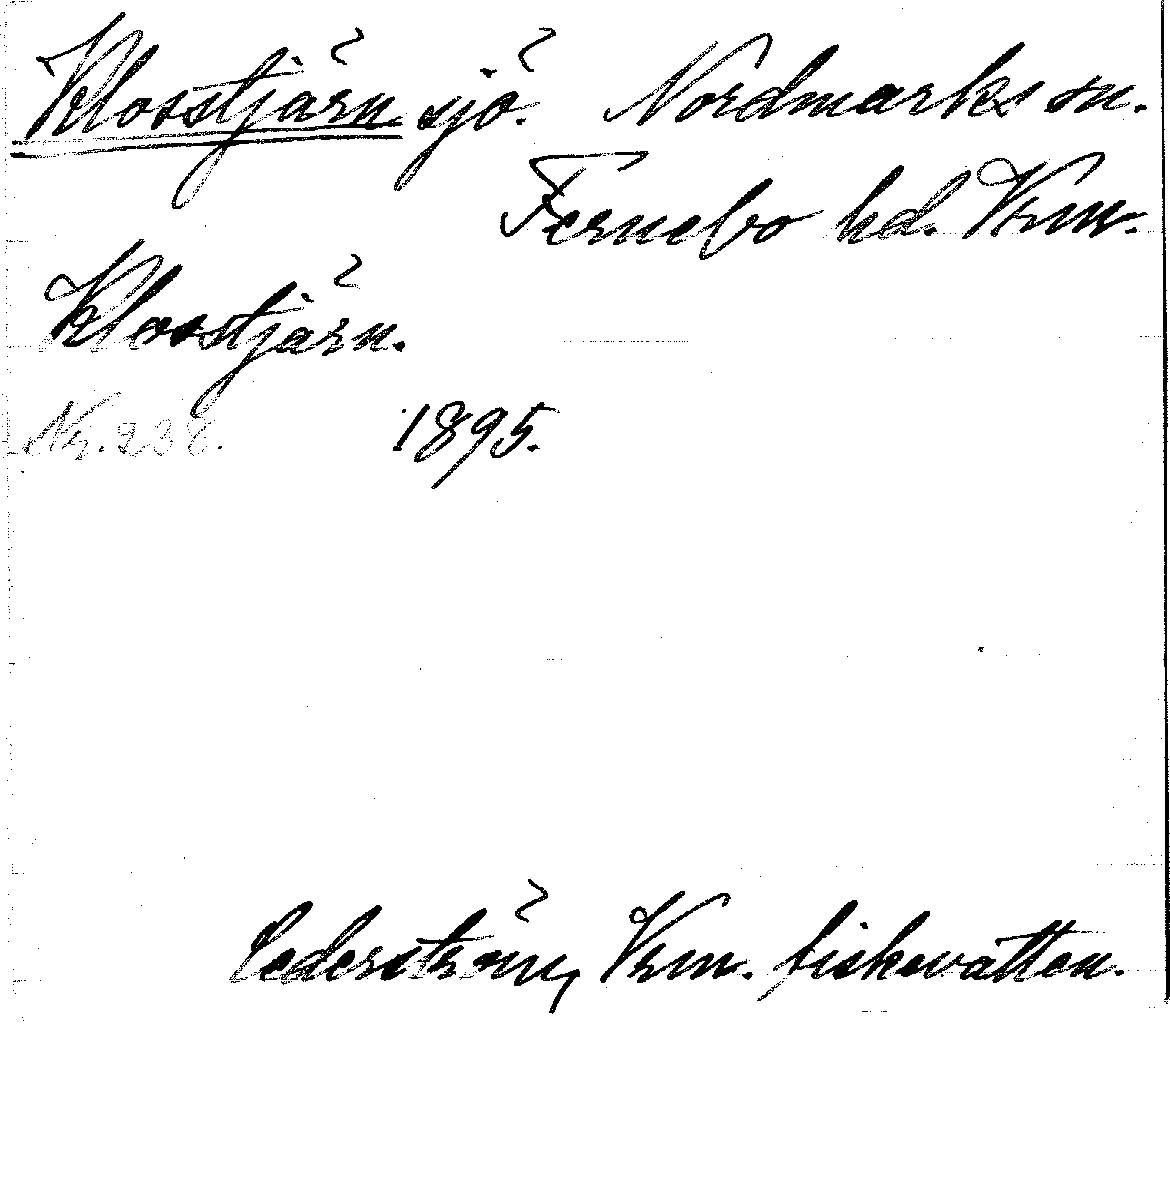 Klosstjärn sjö. Nordmarks sn.
Fernebo hd. Vrm.
Klosstjärn.
Nr. 238. 1895.
Cederström, Vrm. fiskevatten.